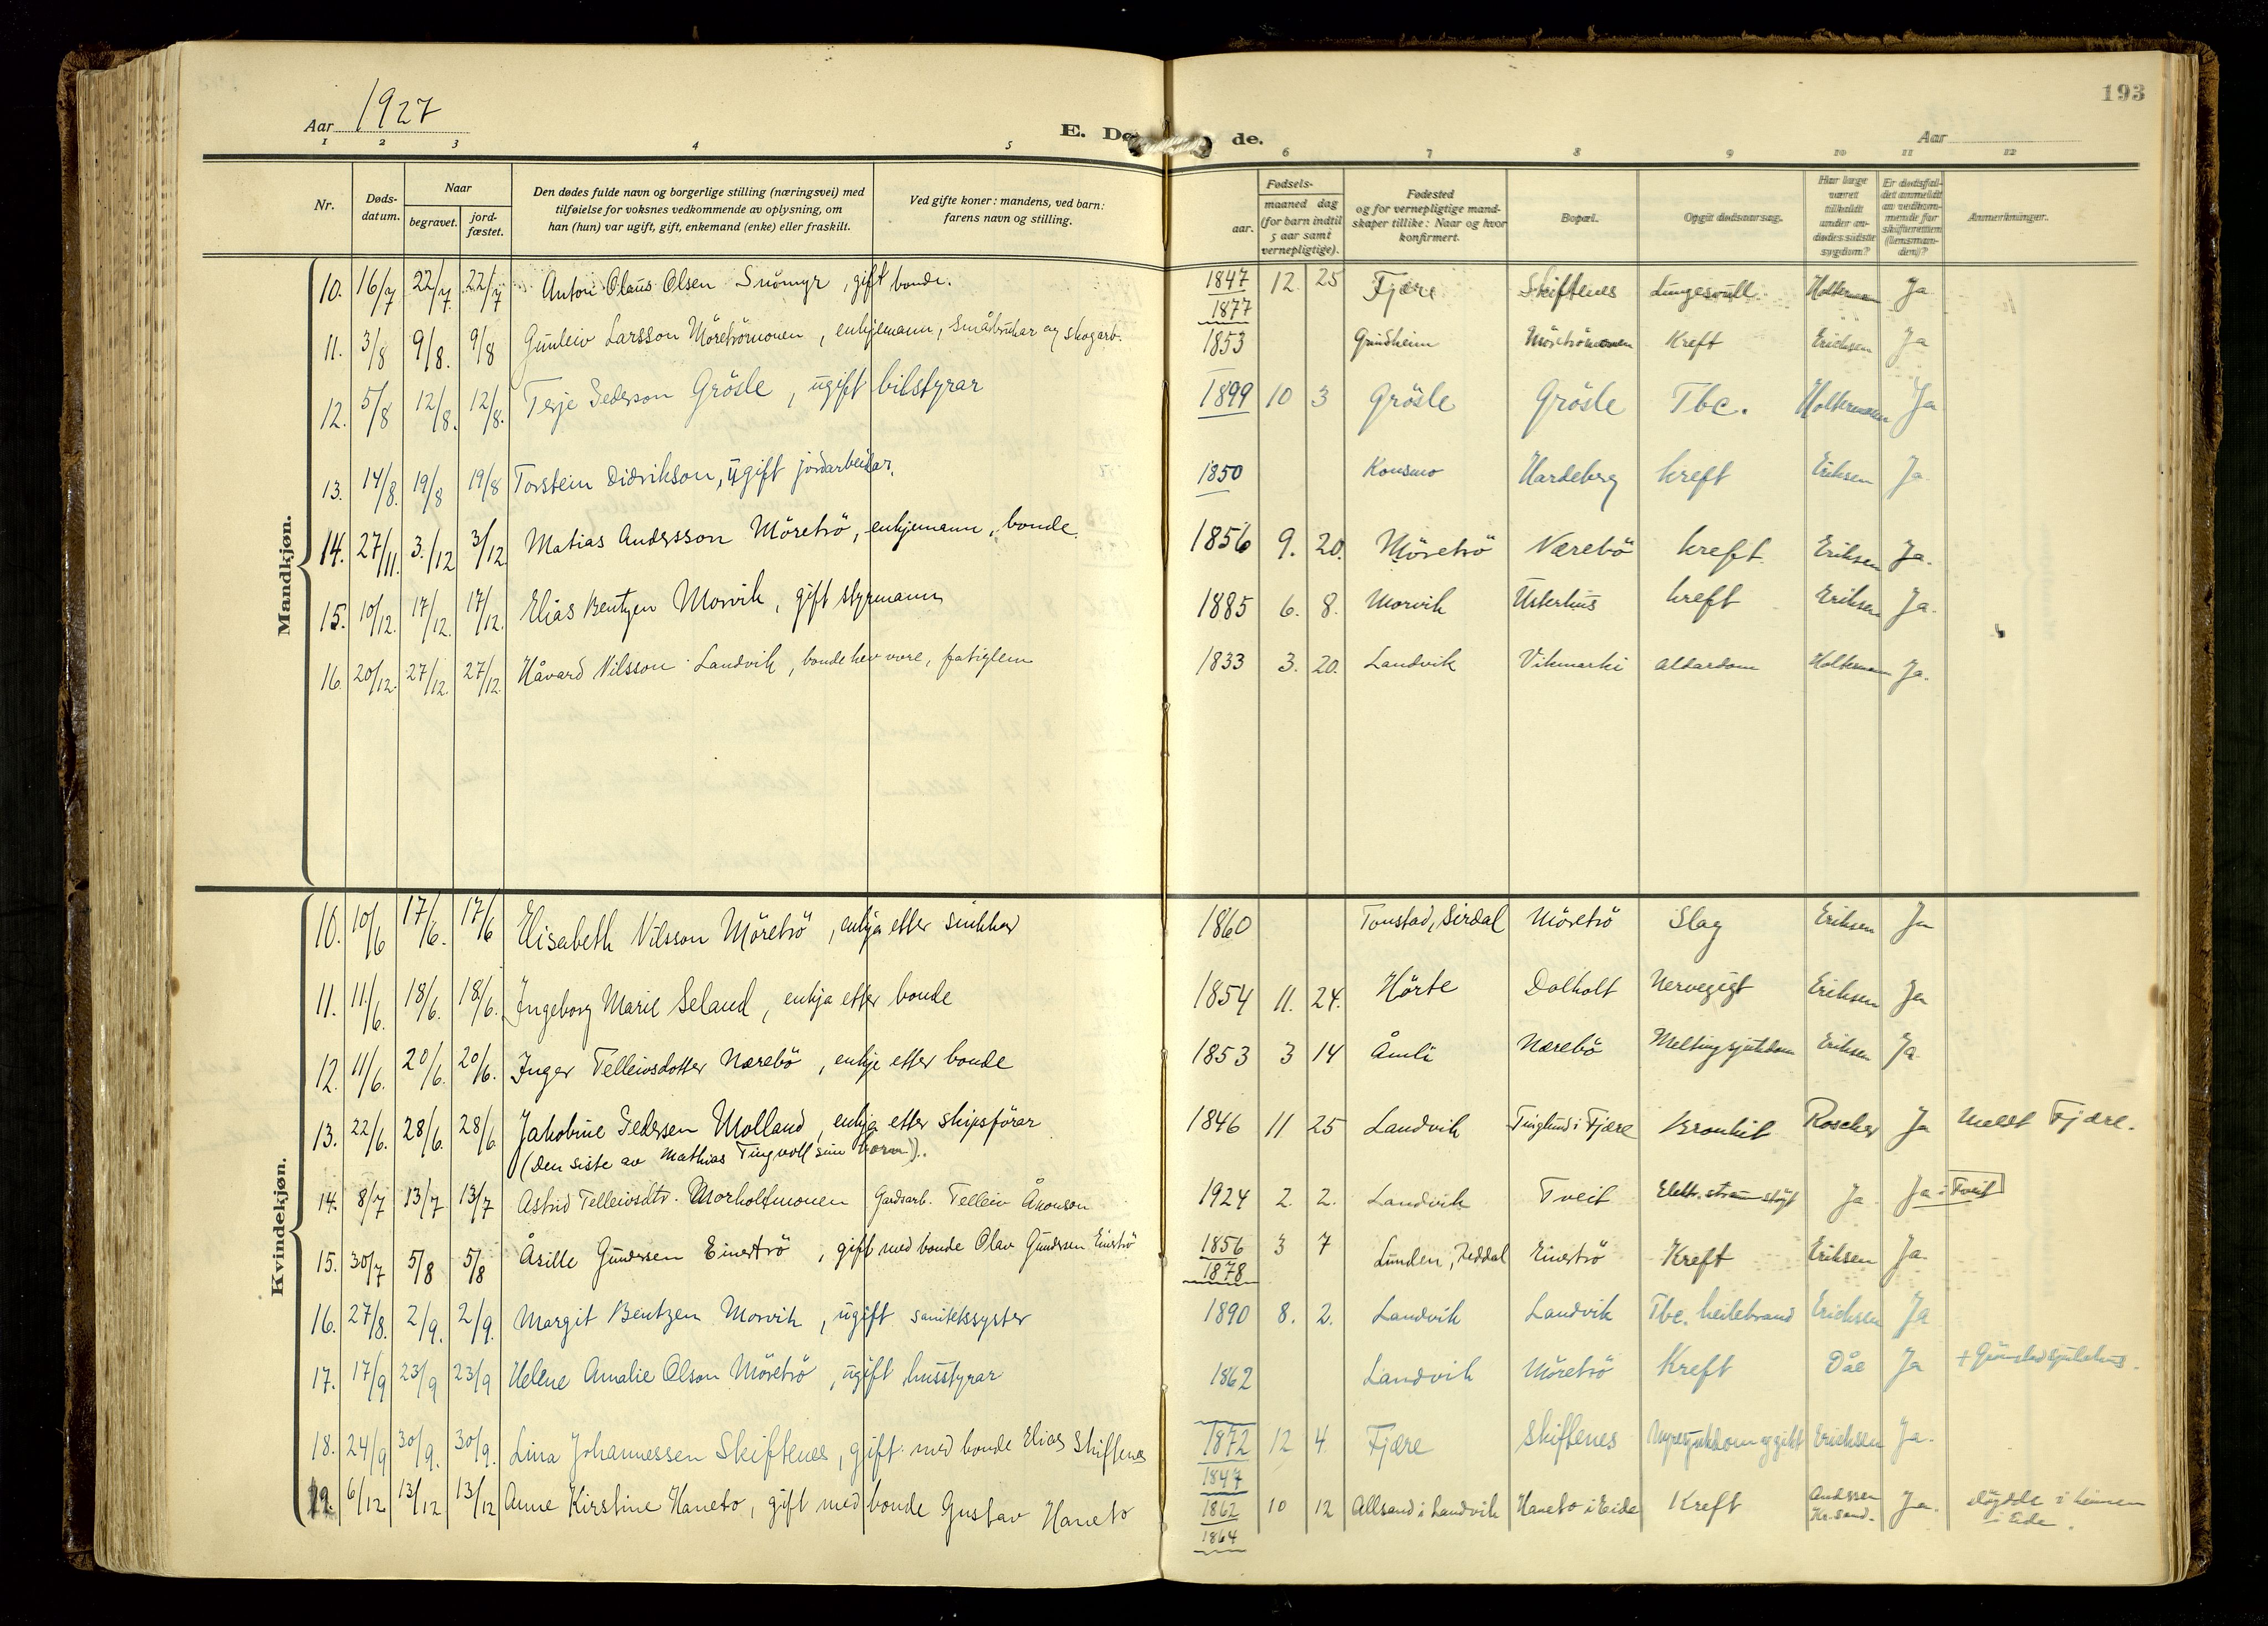 193
Aar 1927
E. Dø de.
Aar
1 2 3 4 5 6 7 8 9 10 11 12
Nr.
Døds-
datum.
Naar
begravet.
jord-
fæstet.
Den dødes fulde navn og borgerlige stilling (næringsvei) med
tilføielse for voksnes vedkommende av oplysning, om
han (hun) var ugift, gift, enkemand (enke) eller fraskilt.
Ved gifte koner: mandens, ved barn:
farens navn og stilling.
Fødsels-
aar.
maaned dag
(for barn indtil
5 aar samt
vernepligtige).
Fødested
og for vernepligtige mand-
skaper tillike: Naar og hvor
konfirmert.
Bopæl.
Opgit dødsaarsag.
Har læge
været
tilkaldt
under av-
dødes sidste
sygdom?
Er dødsfal-
det anmeldt
av vedkom-
mende for
skifteretten
(lensman-
den)?
Anmerkninger.
Mandkjøn.
10. 16/7 22/7 22/7 Anton Olaus Olsen Snømyr, gift bonde. 1847 12 25 Fjære Skiftenes Lungesvull Holterman Ja
1877
11. 3/8 9/8. 9/8 Gunleiv Larsson Möretrömonen, enkjemann, småbrukar og skogarb. 1853 Grindheim Möretrömonen Kreft Erichsen Ja
12. 5/8 12/8. 12/8. Terje Pederson Grösle, ugift bilstyrar 1899 10 3 Grösle Grösle Tbc. Holterman Ja
13. 14/8. 19/8 19/8 Torstein Didrikson, ugift jordarbeidar. 1850 Konsmo Hardeberg kreft Eriksen Ja
14. 27/11. 3./12 3/12 Matias Andersson Möretrö, enkjemann, bonde. 1856 9. 20. Möretrö Nærebö kreft Eriksen Ja.
15. 10/12. 17/12. 17/12. Elias Bentzen Morvik, gift styrmann 1885 6. 8. Morvik Usterhus kreft Eriksen Ja.
16. 20/12. 27/12. 27/12. Håvard Nilsson Landvik, bonde hev vore, fatiglem 1833 3. 20. Landvik Vikmarki aldardom Holterman Ja.
Kvindekjøn.
10. 10/6 17/6. 17/6 Elisabeth Nilsson Möretrö, enkja etter snikkar 1860 Tonstad, Sirdal Möretrö Slag Eriksen Ja
11. 11./6. 18/6. 18/6. Ingeborg Marie Seland, enkja etter bonde 1854 11. 24. Hörte Dolholt Nervegigt Eriksen Ja
12. 11/6. 20/6. 20/6. Inger Telleivsdotter Nærebö, enkje etter bonde 1853 3 14 Åmli Nærebö Meltingsjukdom Eriksen Ja
13. 22/6. 28/6. 28/6 Jakobine Pedersen Molland, enkja etter skipsförar 1846 11 25 Landvik Tinglund i Fjære Bronkit Roscher Ja Meldt Fjære.
(Den siste av Mathias Tingvoll sine born).
14. 8/7 13/7 13/7 Astrid Telleivsdtr. Morholtmonen Gardsarb. Telleiv Ånonson 1924 2. 2. Landvik Tveit Elektr. straum støyt Ja Ja i Tveit
15. 30/7 5/8 5/8 Åsille Gundersen Einertrö, gift med bonde Olav Gundersen Einertrö 1856 3 7 Lunden, Reddal Einertrö Kreft Eriksen Ja
1878
16. 27/8. 2/9. 2/9. Margit Bentzen Morvik, ugift sanitetssyster 1890 8. 2. Landvik Landvik Tbc. heilebrand Erichsen Ja
17. 17/9 23/9 23/9 Helene Amalie Olson Möretrö, ugift husstyrar 1862 Landvik Möretrö Kreft Dåe Ja + Grimstad sjukehus.
18. 24/9 30/9. 30/9. Lina Johannessen Skiftenes, gift med bonde Elias Skiftenes 1872 12 4 Fjære Skiftenes Nyresjukdom og gikt Erichsen Ja.
1847
19. 6/12 13/12 13/12 Anne Kirstine Haneto, gift med bonde Gustav Haneto 1862 10 12 Allsand i Landvik Haneto i Eide Kreft Anderssen Kr.sand. Ja. døydde i heimen
i Eide.
1864